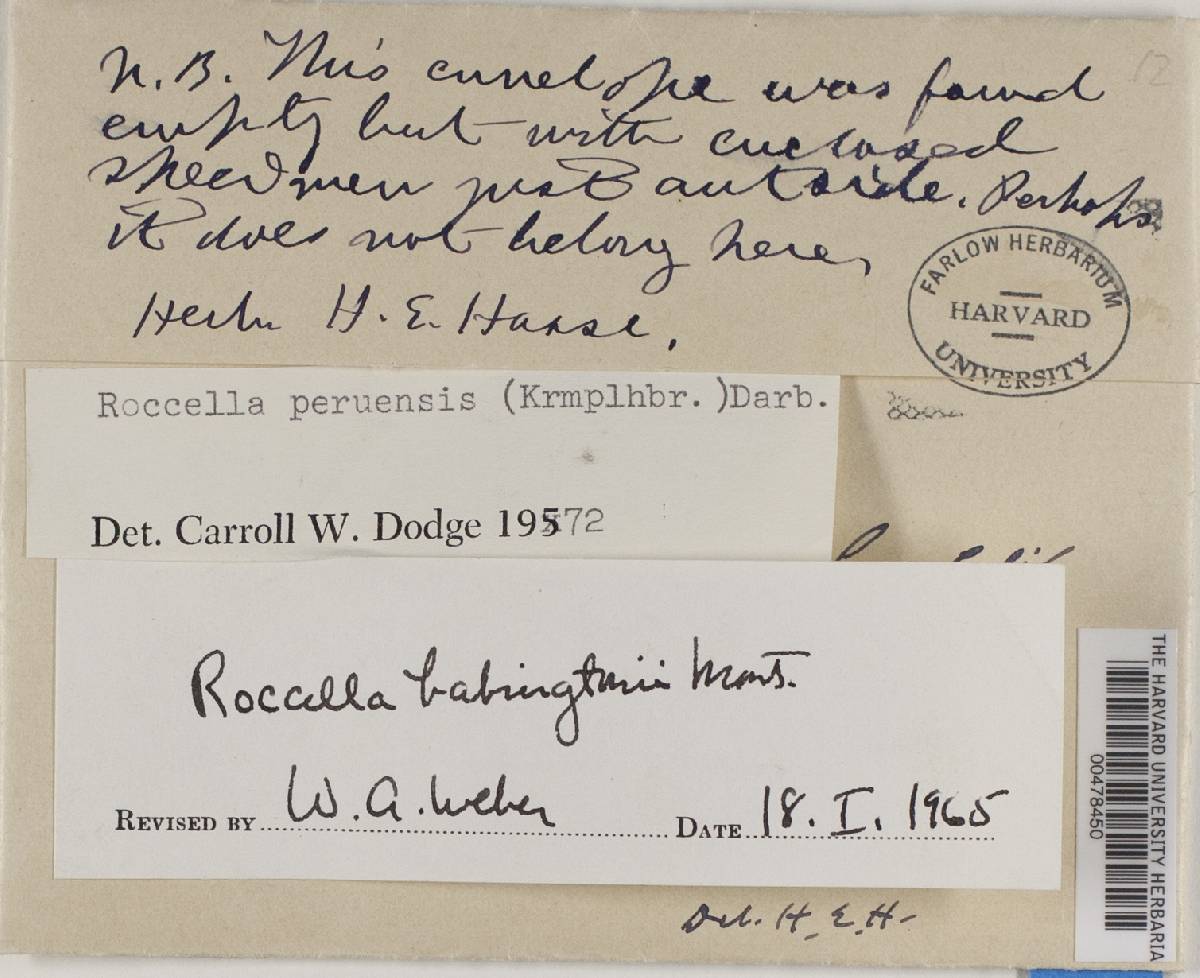 12
N.B. This envelope was found
empty but with enclosed
specimen just outside. Perhaps
it does not belong here,
Herb. H. E. Hasse.
FARLOW HERBARIUM
HARVARD
UNIVERSITY
Roccella peruensis (Krmplhbr.)Darb.
Det. Carroll W. Dodge 19572
Roccella babingtonii Mont.
REVISED BY W. A. Weber DATE 18. I. 1965
Det. H. E. H-
THE HARVARD UNIVERSITY HERBARIA
00478450